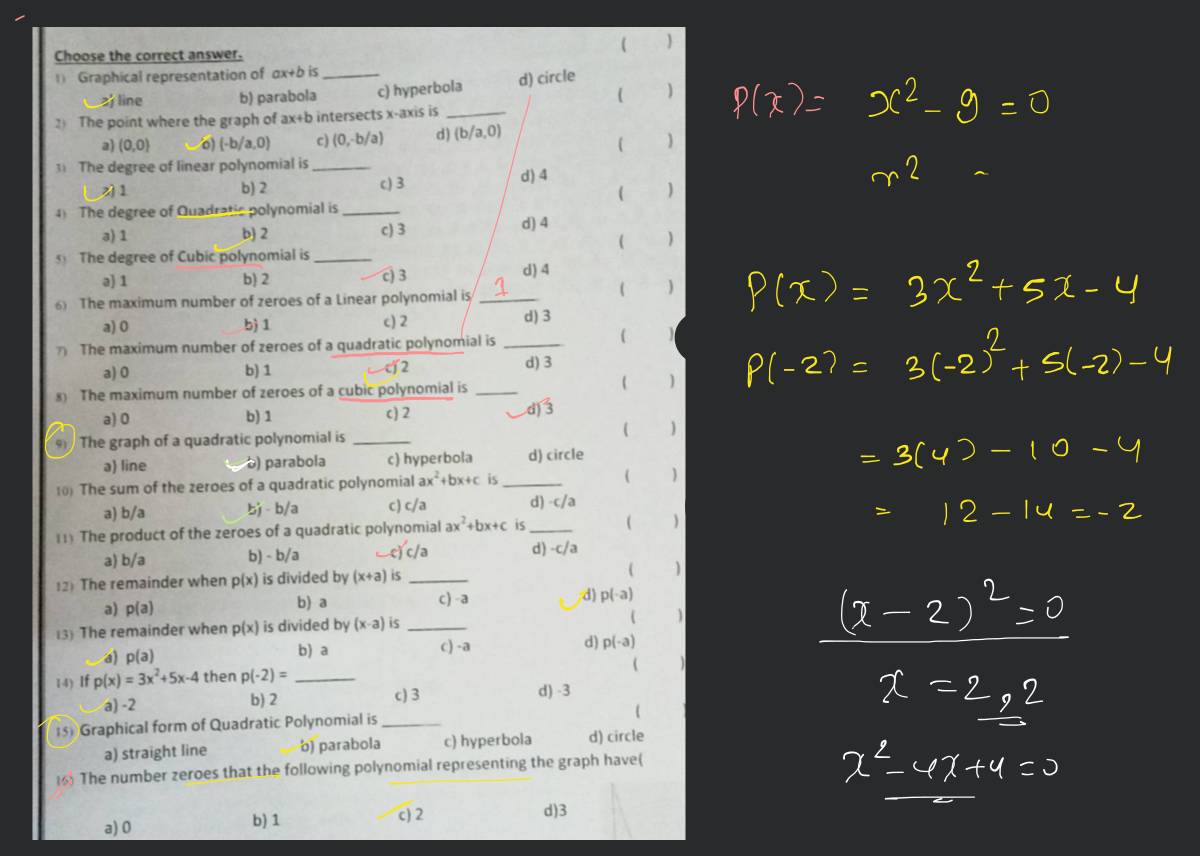 Choose the correct answer. ( )
1) Graphical representation of ax+b is ______
a) line b) parabola c) hyperbola d) circle
2) The point where the graph of ax+b intersects x-axis is ______ ( )
a) (0,0) b) (-b/a,0) c) (0,-b/a) d) (b/a,0)
3) The degree of linear polynomial is ______ ( )
a) 1 b) 2 c) 3 d) 4
4) The degree of Quadratic polynomial is ______ ( )
a) 1 b) 2 c) 3 d) 4
5) The degree of Cubic polynomial is ______ ( )
a) 1 b) 2 c) 3 d) 4
6) The maximum number of zeroes of a Linear polynomial is 1 ( )
a) 0 b) 1 c) 2 d) 3
7) The maximum number of zeroes of a quadratic polynomial is ______ ( )
a) 0 b) 1 c) 2 d) 3
8) The maximum number of zeroes of a cubic polynomial is ______ ( )
a) 0 b) 1 c) 2 d) 3
9) The graph of a quadratic polynomial is ______ ( )
a) line b) parabola c) hyperbola d) circle
10) The sum of the zeroes of a quadratic polynomial ax²+bx+c is ______ ( )
a) b/a b) - b/a c) c/a d) -c/a
11) The product of the zeroes of a quadratic polynomial ax²+bx+c is ______ ( )
a) b/a b) - b/a c) c/a d) -c/a
12) The remainder when p(x) is divided by (x+a) is ______ ( )
a) p(a) b) a c) -a d) p(-a)
13) The remainder when p(x) is divided by (x-a) is ______ ( )
a) p(a) b) a c) -a d) p(-a)
14) If p(x) = 3x²+5x-4 then p(-2) = ______ ( )
a) -2 b) 2 c) 3 d) -3
15) Graphical form of Quadratic Polynomial is ______ (
a) straight line b) parabola c) hyperbola d) circle
16) The number zeroes that the following polynomial representing the graph have(
a) 0 b) 1 c) 2 d)3
P(x)= x² - 9 = 0
x² -
P(x) = 3x² + 5x - 4
P(-2) = 3(-2)² + 5(-2) - 4
= 3(4) - 10 - 4
= 12 - 14 = -2
(x - 2)² = 0
x = 2,2
x² - 4x + 4 = 0